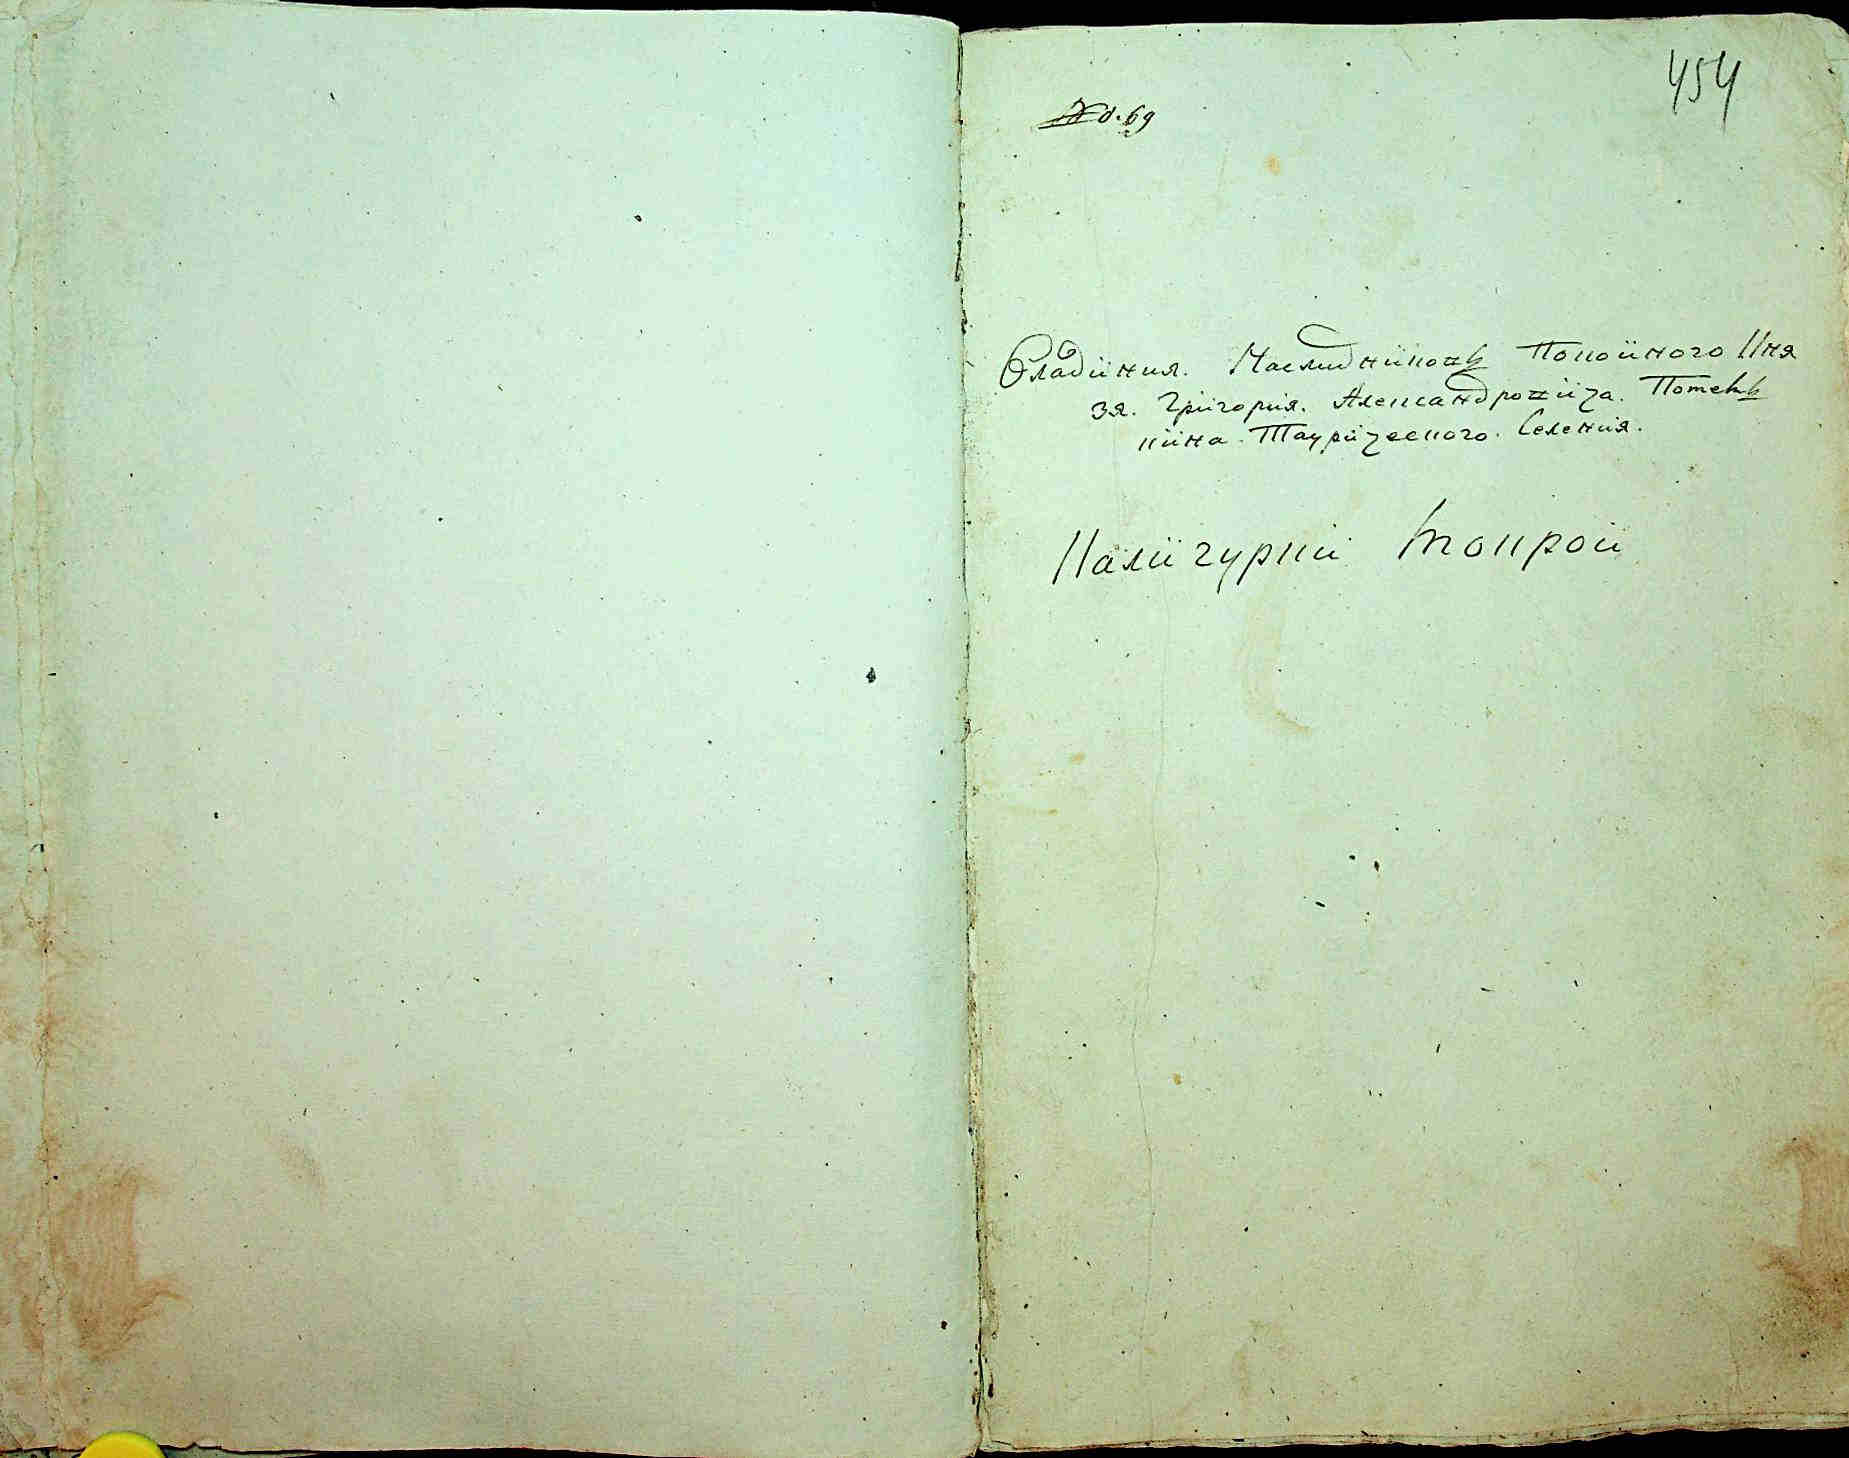 454
№. 69
Владиния. Наследниковъ Покойного Кня
зя. Григория. Александровича. Потем
кина. Таурического. Селения.
Каличурки Второй